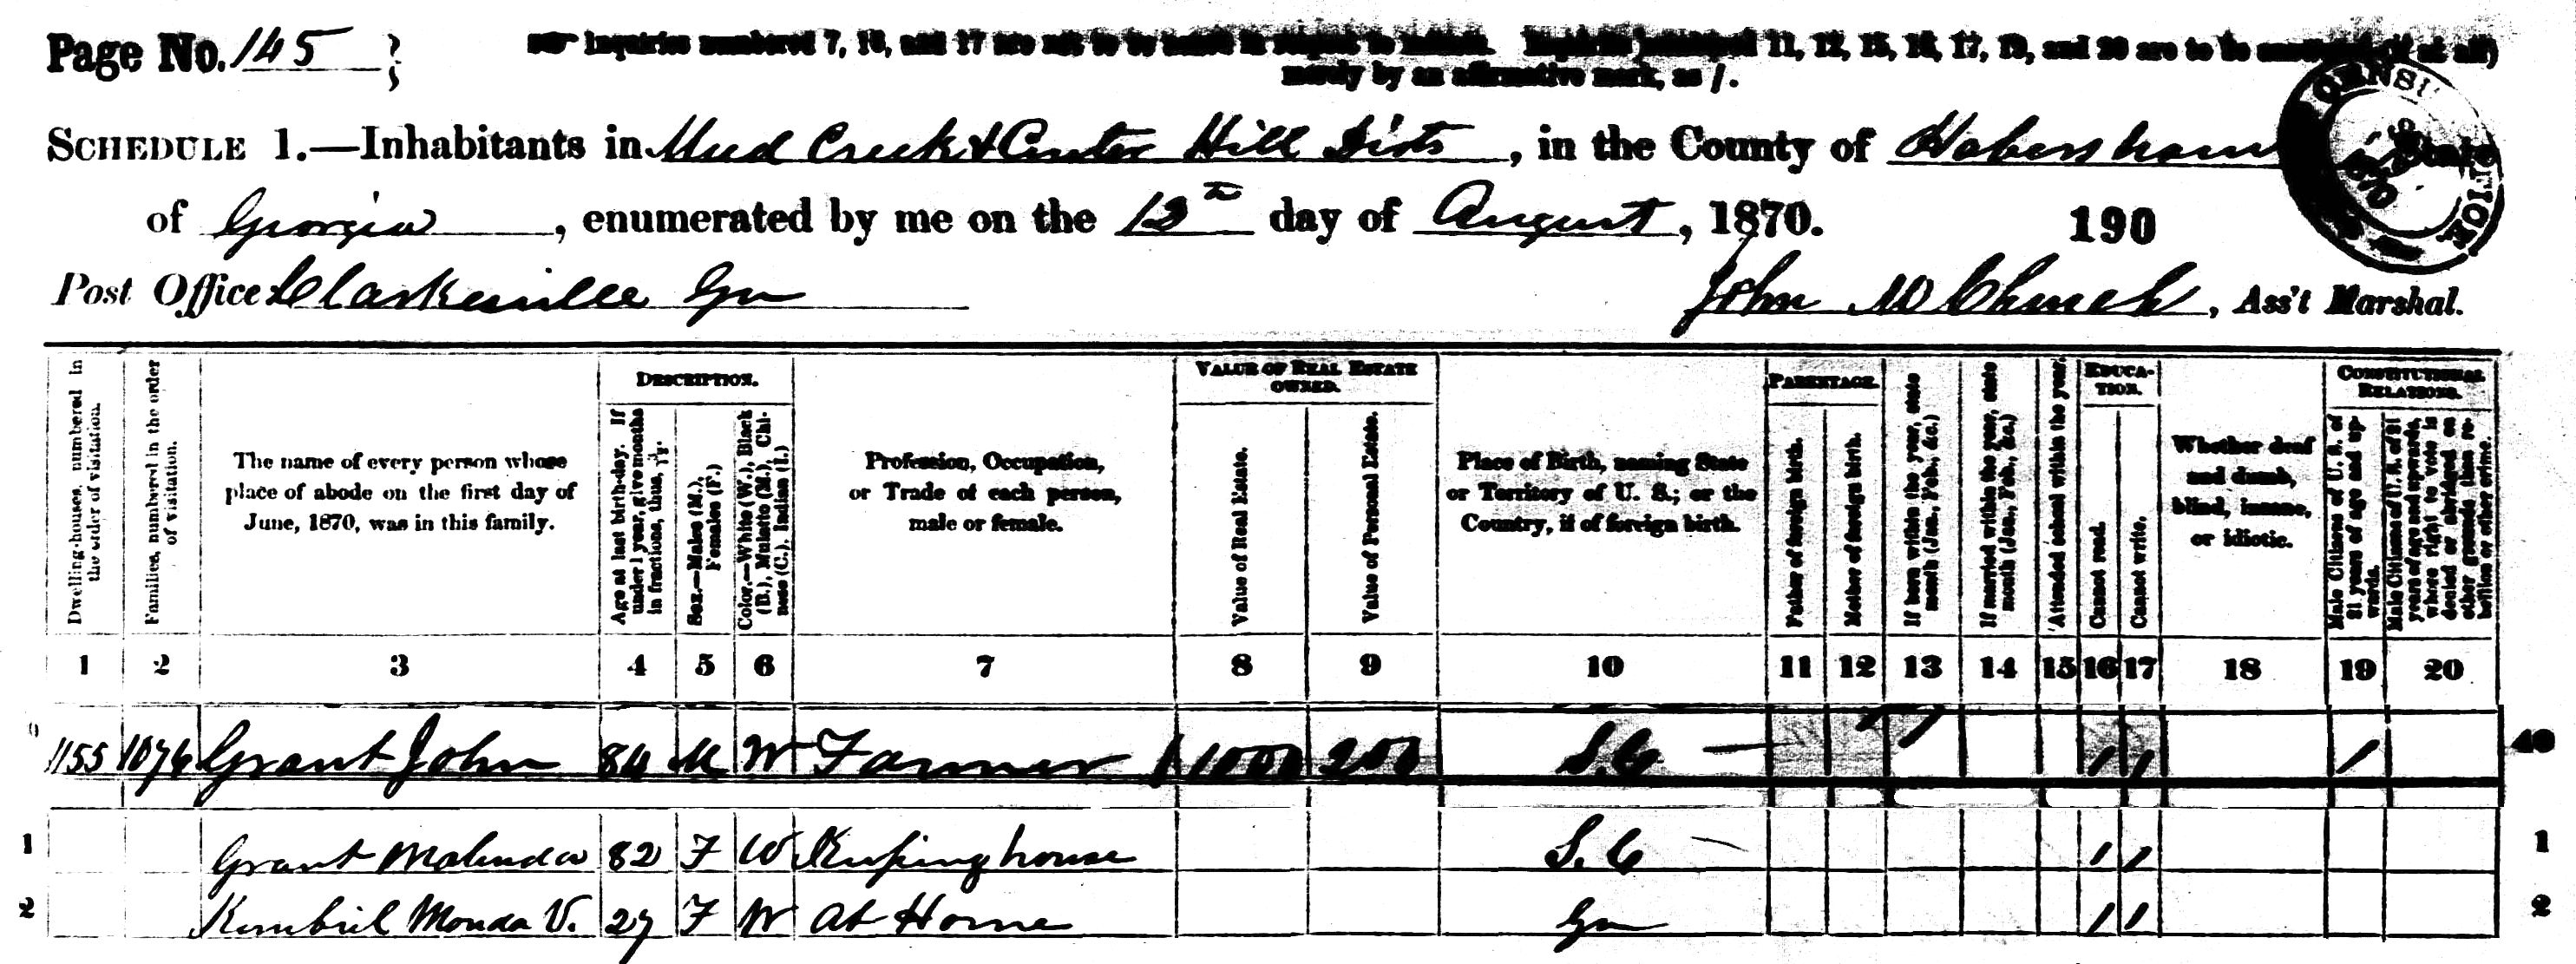 Page No. 145
Inquiries numbered 7, 16, and 17 are not to be asked in respect to infants. Inquiries numbered 11, 12, 15, 16, 17, 19, and 20 are to be answered (if at all)
merely by an affirmative mark, as /.
SCHEDULE 1.—Inhabitants in Mud Creek & Center Hill Dists, in the County of Habersham State
of Georgia, enumerated by me on the 12th day of August, 1870. 190
Post Office Clarkesville Ga John W Church, Ass't Marshal.
Dwelling-houses, numbered in the order of visitation.
Families, numbered in the order of visitation.
The name of every person whose place of abode on the first day of June, 1870, was in this family.
DESCRIPTION.
Age at last birth-day. If under 1 year, give months in fractions, thus,
Sex.—Males (M.), Females (F.)
Color.—White (W.), Black (B.), Mulatto (M.), Chinese (C.), Indian (I.)
Profession, Occupation, or Trade of each person, male or female.
VALUE OF REAL ESTATE OWNED.
Value of Real Estate.
Value of Personal Estate.
Place of Birth, naming State or Territory of U. S.; or the Country, if of foreign birth.
PARENTAGE.
Father of foreign birth.
Mother of foreign birth.
If born within the year, state month (Jan., Feb., &c.)
If married within the year, state month (Jan., Feb., &c.)
Attended school within the year.
EDUCATION.
Cannot read.
Cannot write.
Whether deaf and dumb, blind, insane, or idiotic.
CONSTITUTIONAL RELATIONS.
Male Citizens of U. S. of 21 years of age and upwards.
Male Citizens of U. S. of 21 years of age and upwards, where right to vote is denied or abridged on other grounds than rebellion or other crime.
1 2 3 4 5 6 7 8 9 10 11 12 13 14 15 16 17 18 19 20
1155 1076 Grant John 84 M W Farmer 1000 200 S.C / / / 40
1 Grant Malinda 82 F W Keeping house S.C / / 1
2 Kimbril Monda V. 27 F W At Home Ga / / 2